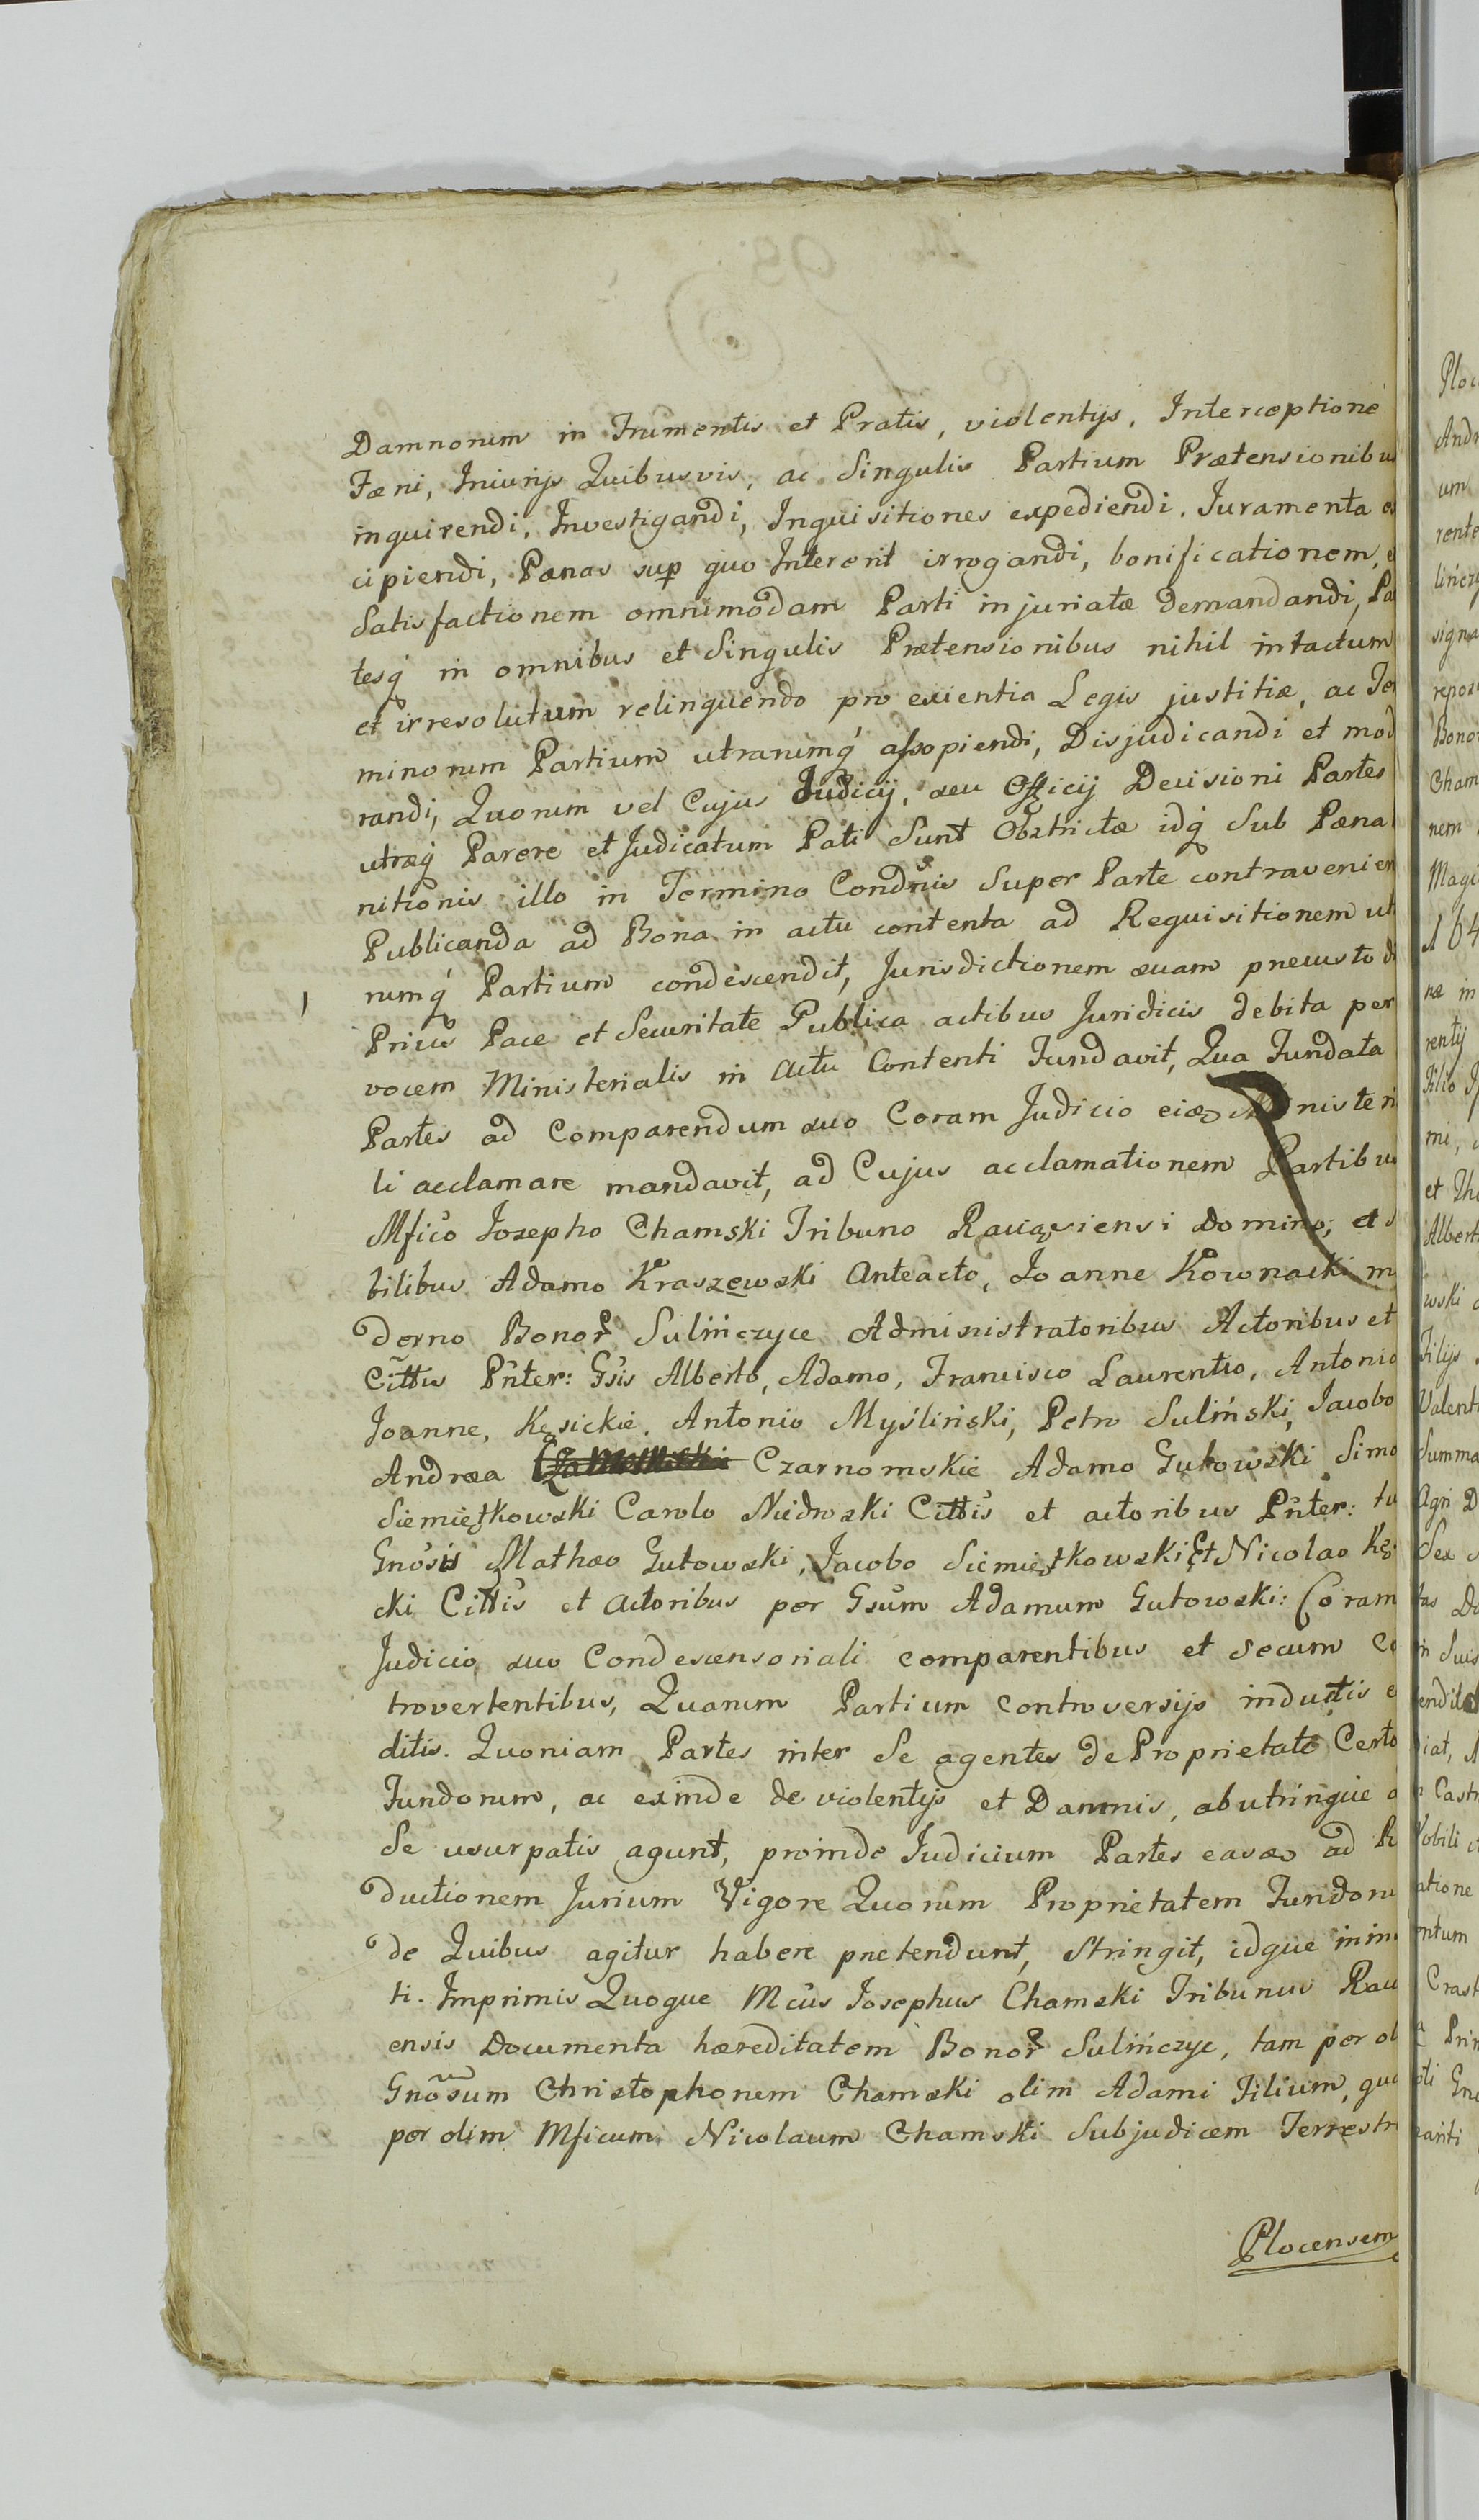 Damnorum in Frumentis et Pratis, violentijs, Interceptione
Fæni, Iniurijs Quibusvis, ac Singulis Partium Prætensionibus
inquirendi, Investigandi, Inquisitiones expediendi, Juramenta ex
cipiendi, Pænas sup quo Intererit irrogandi, bonificationem, e
Satisfactionem omnimodam Parti injuriatæ demandandi, Pa
tesq́ in omnibus et Singulis Prætensionibus nihil intactum
et irresolutum relinquendo pro exientia Legis justitiæ, ac Ter
minorum Partium utrarumq́ assopiendi, Disjudicandi et mod
randi, Quorum vel Cujus Judicij, seu Officij Decisioni Partes
utræq́ Parere et Judicatum Pati Sunt Obstrictæ idq́ Sub Pæna
nitionis illo in Termino Condnis Super Parte contravenien
Publicanda ad Bona in actu contenta ad Requisitionem ut
rumq́ Partium condescendit, Jurisdictionem suam precustodi
Prius Pace et Securitate Publica actibus Juridicis debita per
vocem Ministerialis in Actu Contenti Fundavit, Qua Fundata
Partes ad Comparendum suo Coram Judicio eisd Ministeri
li acclamare mandavit, ad Cujus acclamationem Partibus
Mfico Josepho Chamski Tribuno Raciąsiensi Domino, et
bilibus Adamo Kraszewski Anteacto, Joanne Kownacki m
derno Bonor Sulińczyce Administratoribus Actoribus et
Cittis Pnter: Gsis Alberto, Adamo, Francisco Laurentio, Antonio
Joanne, Kęsickie, Antonio Myśliński, Petro Suliński, Jacobo
Andrea Czarnomskie Adamo Gutowski Simo
Siemiątkowski Carolo Niedrski Cittis et actoribus Pnter: tu
Gnosis Mathæo Gutowski, Jacobo Siemiątkowski, Et Nicolao Kę
cki Cittis et Actoribus per Gsum Adamum Gutowski: Coram
Judicio suo Condescensoriali comparentibus et secum Co
trovertentibus, Quarum Partium Controversijs inductis e
ditis. Quoniam Partes inter Se agentes de Proprietate Certo
Fundorum, ac exinde de violentijs et Damnis, ab utrinque a
Se usurpatis agunt, proinde Judicium Partes easd ad R
ductionem Jurium Vigore Quorum Proprietatem Fundoru
de Quibus agitur habere prætendunt, Stringit, idque inim
ti. Imprimis Quoque Mcus Josephus Chamski Tribunus Raci
ensis Documenta hæreditatem Bonor Sulińczyc, tam per ol
Gnosum Christophorem Chamski olim Adami Filium, qua
per olim Mficum Nicolaum Chamski Subjudicem Terrestr
Plocensem